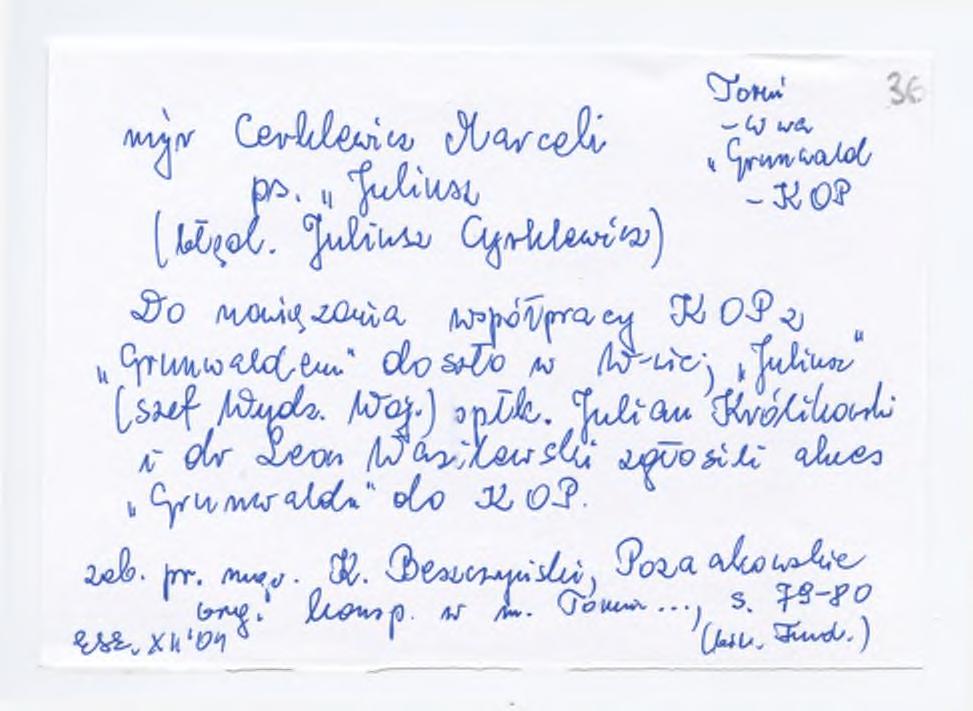 36
Toruń
- W wa
"Grunwald
- KOP
mjr Cerklewicz Marceli
ps. "Juliusz
(błęd. Juliusz Cyrklewicz)
Do nawiązania współpracy KOP z
"Grunwaldem" doszło w W-wie; "Juliusz"
(szef Wydz. Woj.) ppłk. Julian Królikowski
i dr Leon Wasilewski zgłosili akces
"Grunwaldu" do KOP.
zob. pr. mgr. K. Beszczyński, Poza akowskie
org. konsp. w m. Toruniu ..., s. 79-80
XII '04 (bibl. Fund.)